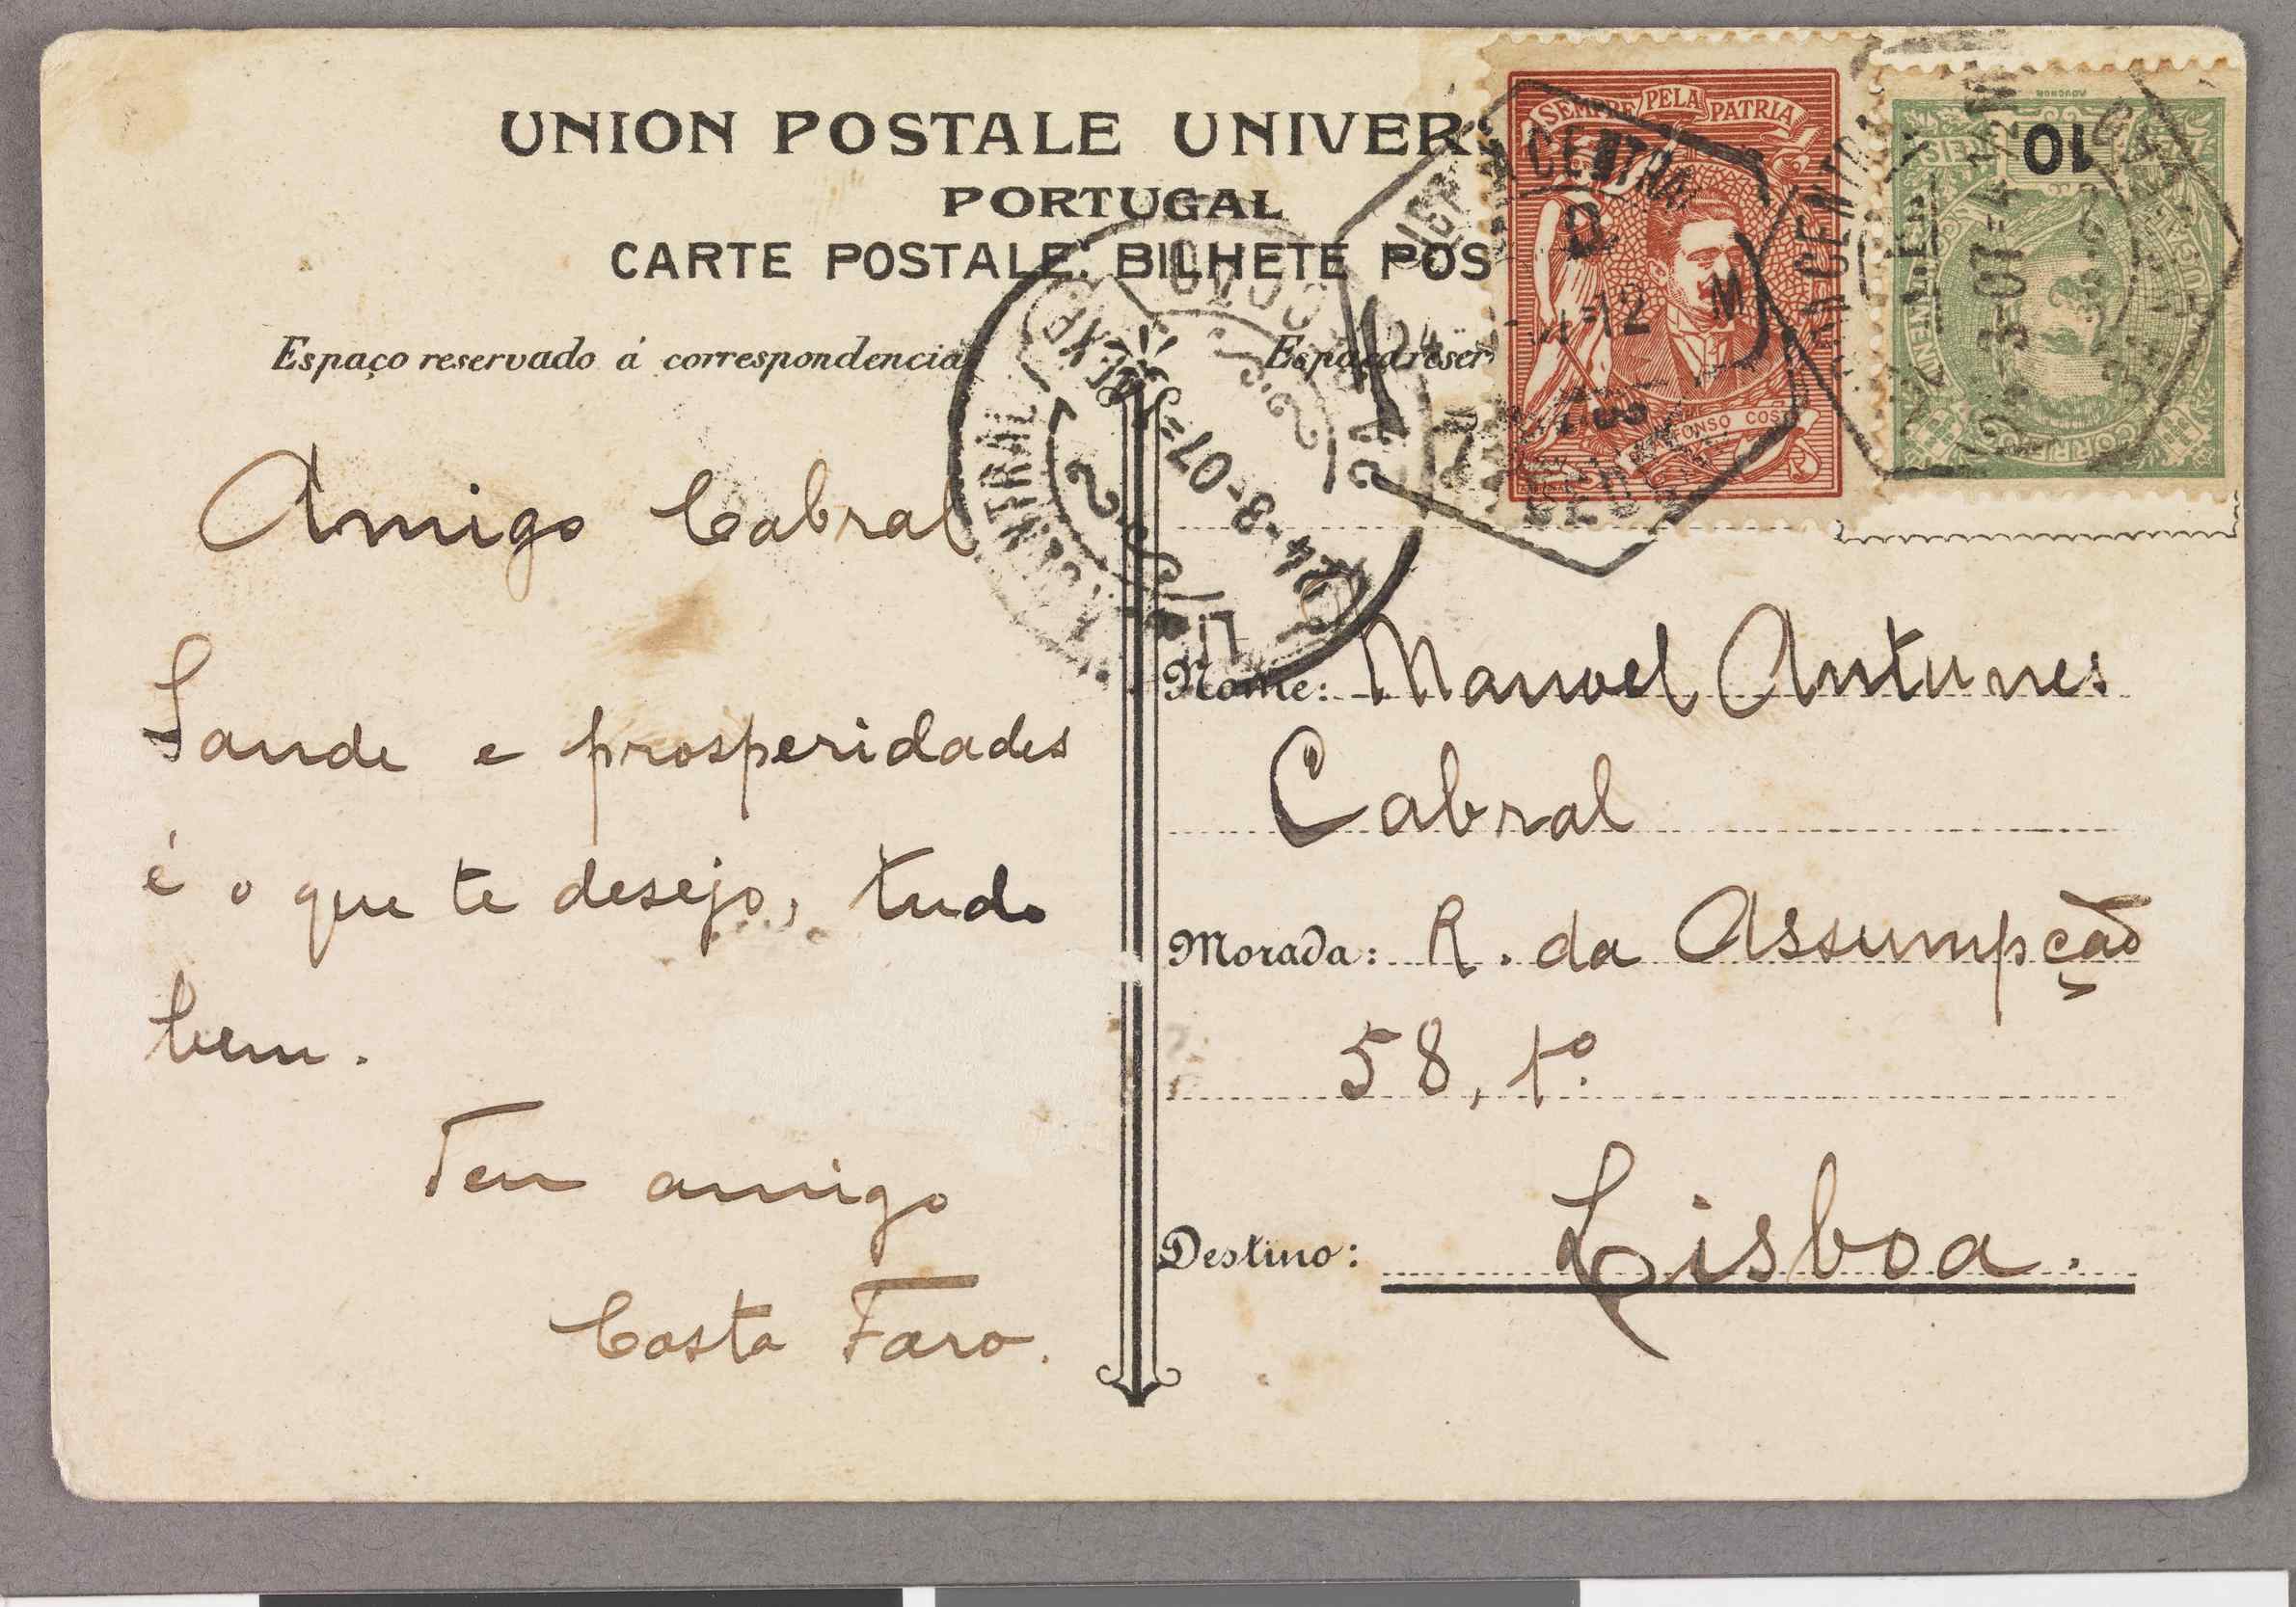 UNION POSTALE UNIVERS
PORTUGAL
CARTE POSTALE: BILHETE POS
Espaço reservado á correspondencia
Espaço reser
SEMPRE PELA PATRIA
AFFONSO COSTA
10
REIS
CORREIOS
CENTRAL
24-3-07
Amigo Cabral
Saude e prosperidades
é o que te desejo, tudo
bem.
Teu amigo
Costa Faro.
Nome: Manoel Antunes
Cabral
Morada: R. da Assumpção
58, 1º
Destino: Lisboa.